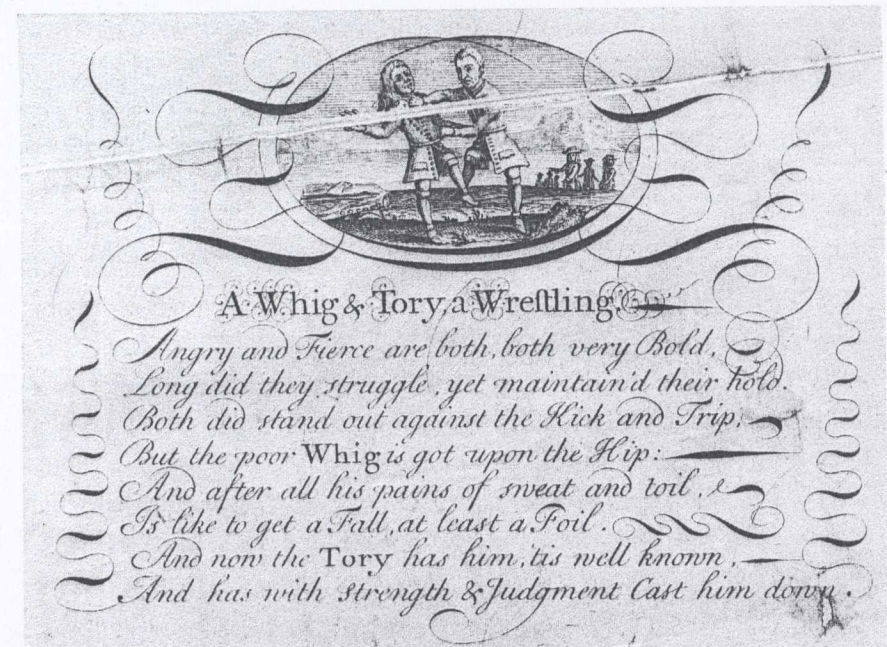 A Whig & Tory, a Wreſtling.
Angry and Fierce are both, both very Bold,
Long did they struggle, yet maintain'd their hold.
Both did stand out against the Kick and Trip;
But the poor Whig is got upon the Hip:
And after all his pains of sweat and toil,
Is like to get a Fall, at least a Foil.
And now the Tory has him, 'tis well known,
And has with strength & Judgment Cast him down.